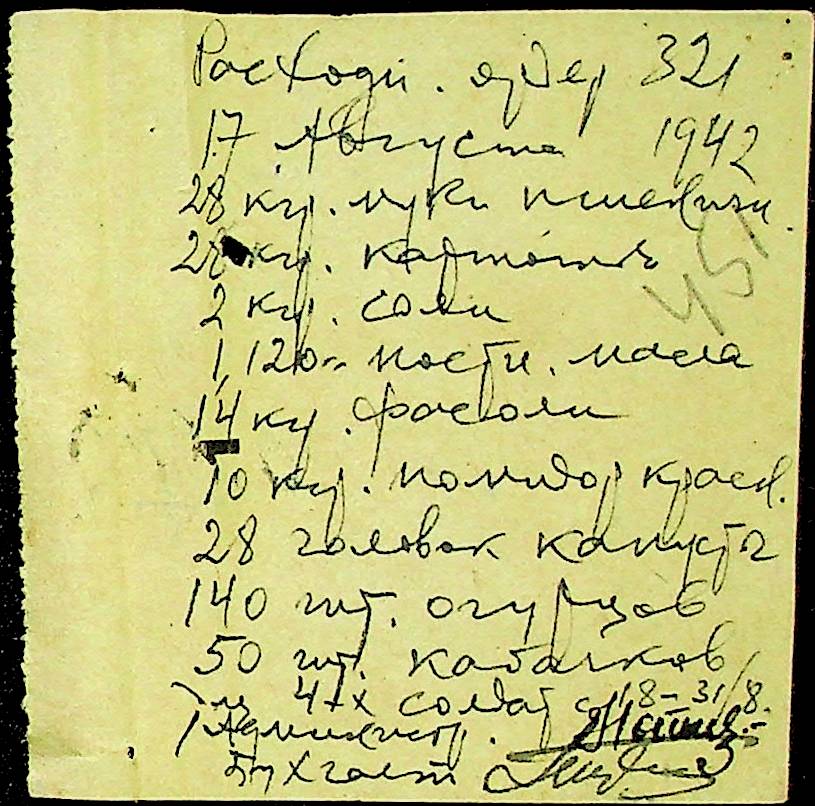 Расходн. ордер 321
17 Августа 1942
28 кгр. муки пшеничн.
451
28 кгр. картошки
2 кгр. соли
1,120 постн. масла
14 кг. фасоли
10 кгр. помидор красн.
28 головок капусты
140 шт. огурцов
50 шт. кабачков
4-х солдат с 18-31/8.
Администр.
Бухгалт